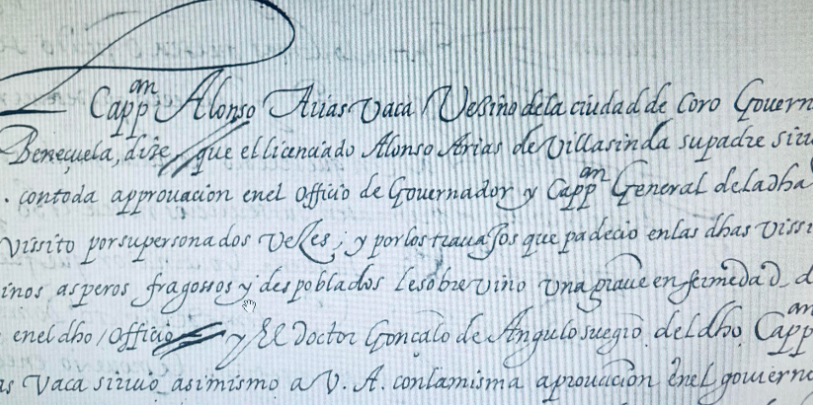 El Capp.an Alonso Arias Vaca Vesino dela ciudad de Coro Gouern
Beneçuela, dise, que el licenciado Alonso Arias de Villasinda su padre siru
. con toda approuacion enel officio de Gouernador y Capp.an General dela dha
Vissito por su persona dos Veses; y por los trauajos que padecio en las dhas vissi
inos asperos fragosos y despoblados le sobre vino una graue enfermedad d
enel dho officio y El Doctor Gonçalo de Angulo suegro del dho Capp.an
as Vaca siruio asimismo a V. A. con la misma aprouacion enel gouierno